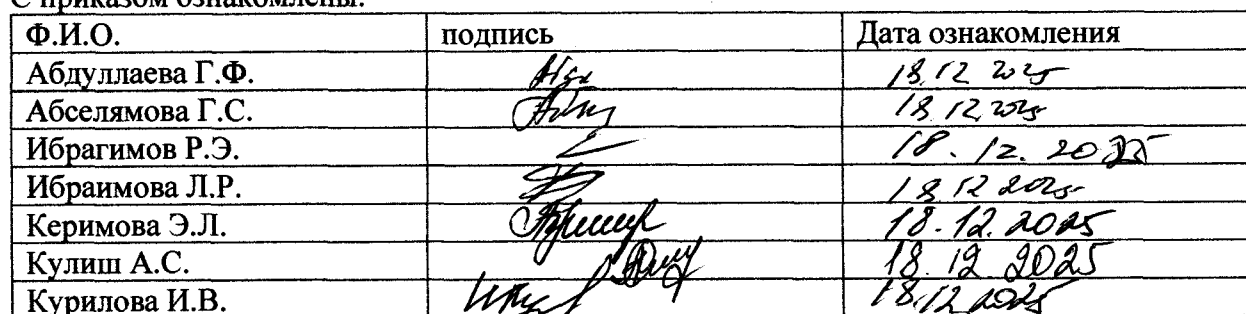 С приказом ознакомлены:
Ф.И.О. подпись Дата ознакомления
Абдуллаева Г.Ф. 18.12 2025
Абселямова Г.С. 18.12.2025
Ибрагимов Р.Э. 18.12.2025
Ибраимова Л.Р. 18.12 2025
Керимова Э.Л. 18.12.2025
Кулиш А.С. 18.12 2025
Курилова И.В. 18.12 2025